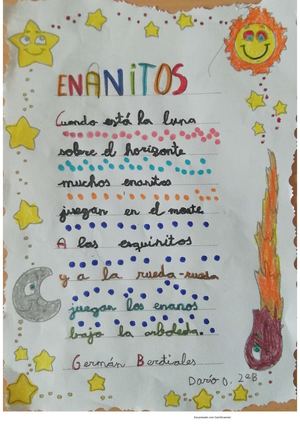 ENANITOS
Cuando está la luna
sobre el horizonte
muchos enanitos
juegan en el monte
A las esquinitas
y a la rueda-rueda
juegan los enanos
bajo la arboleda.
Germán Berdiales
Darío O. 2ºB
Escaneado con CamScanner